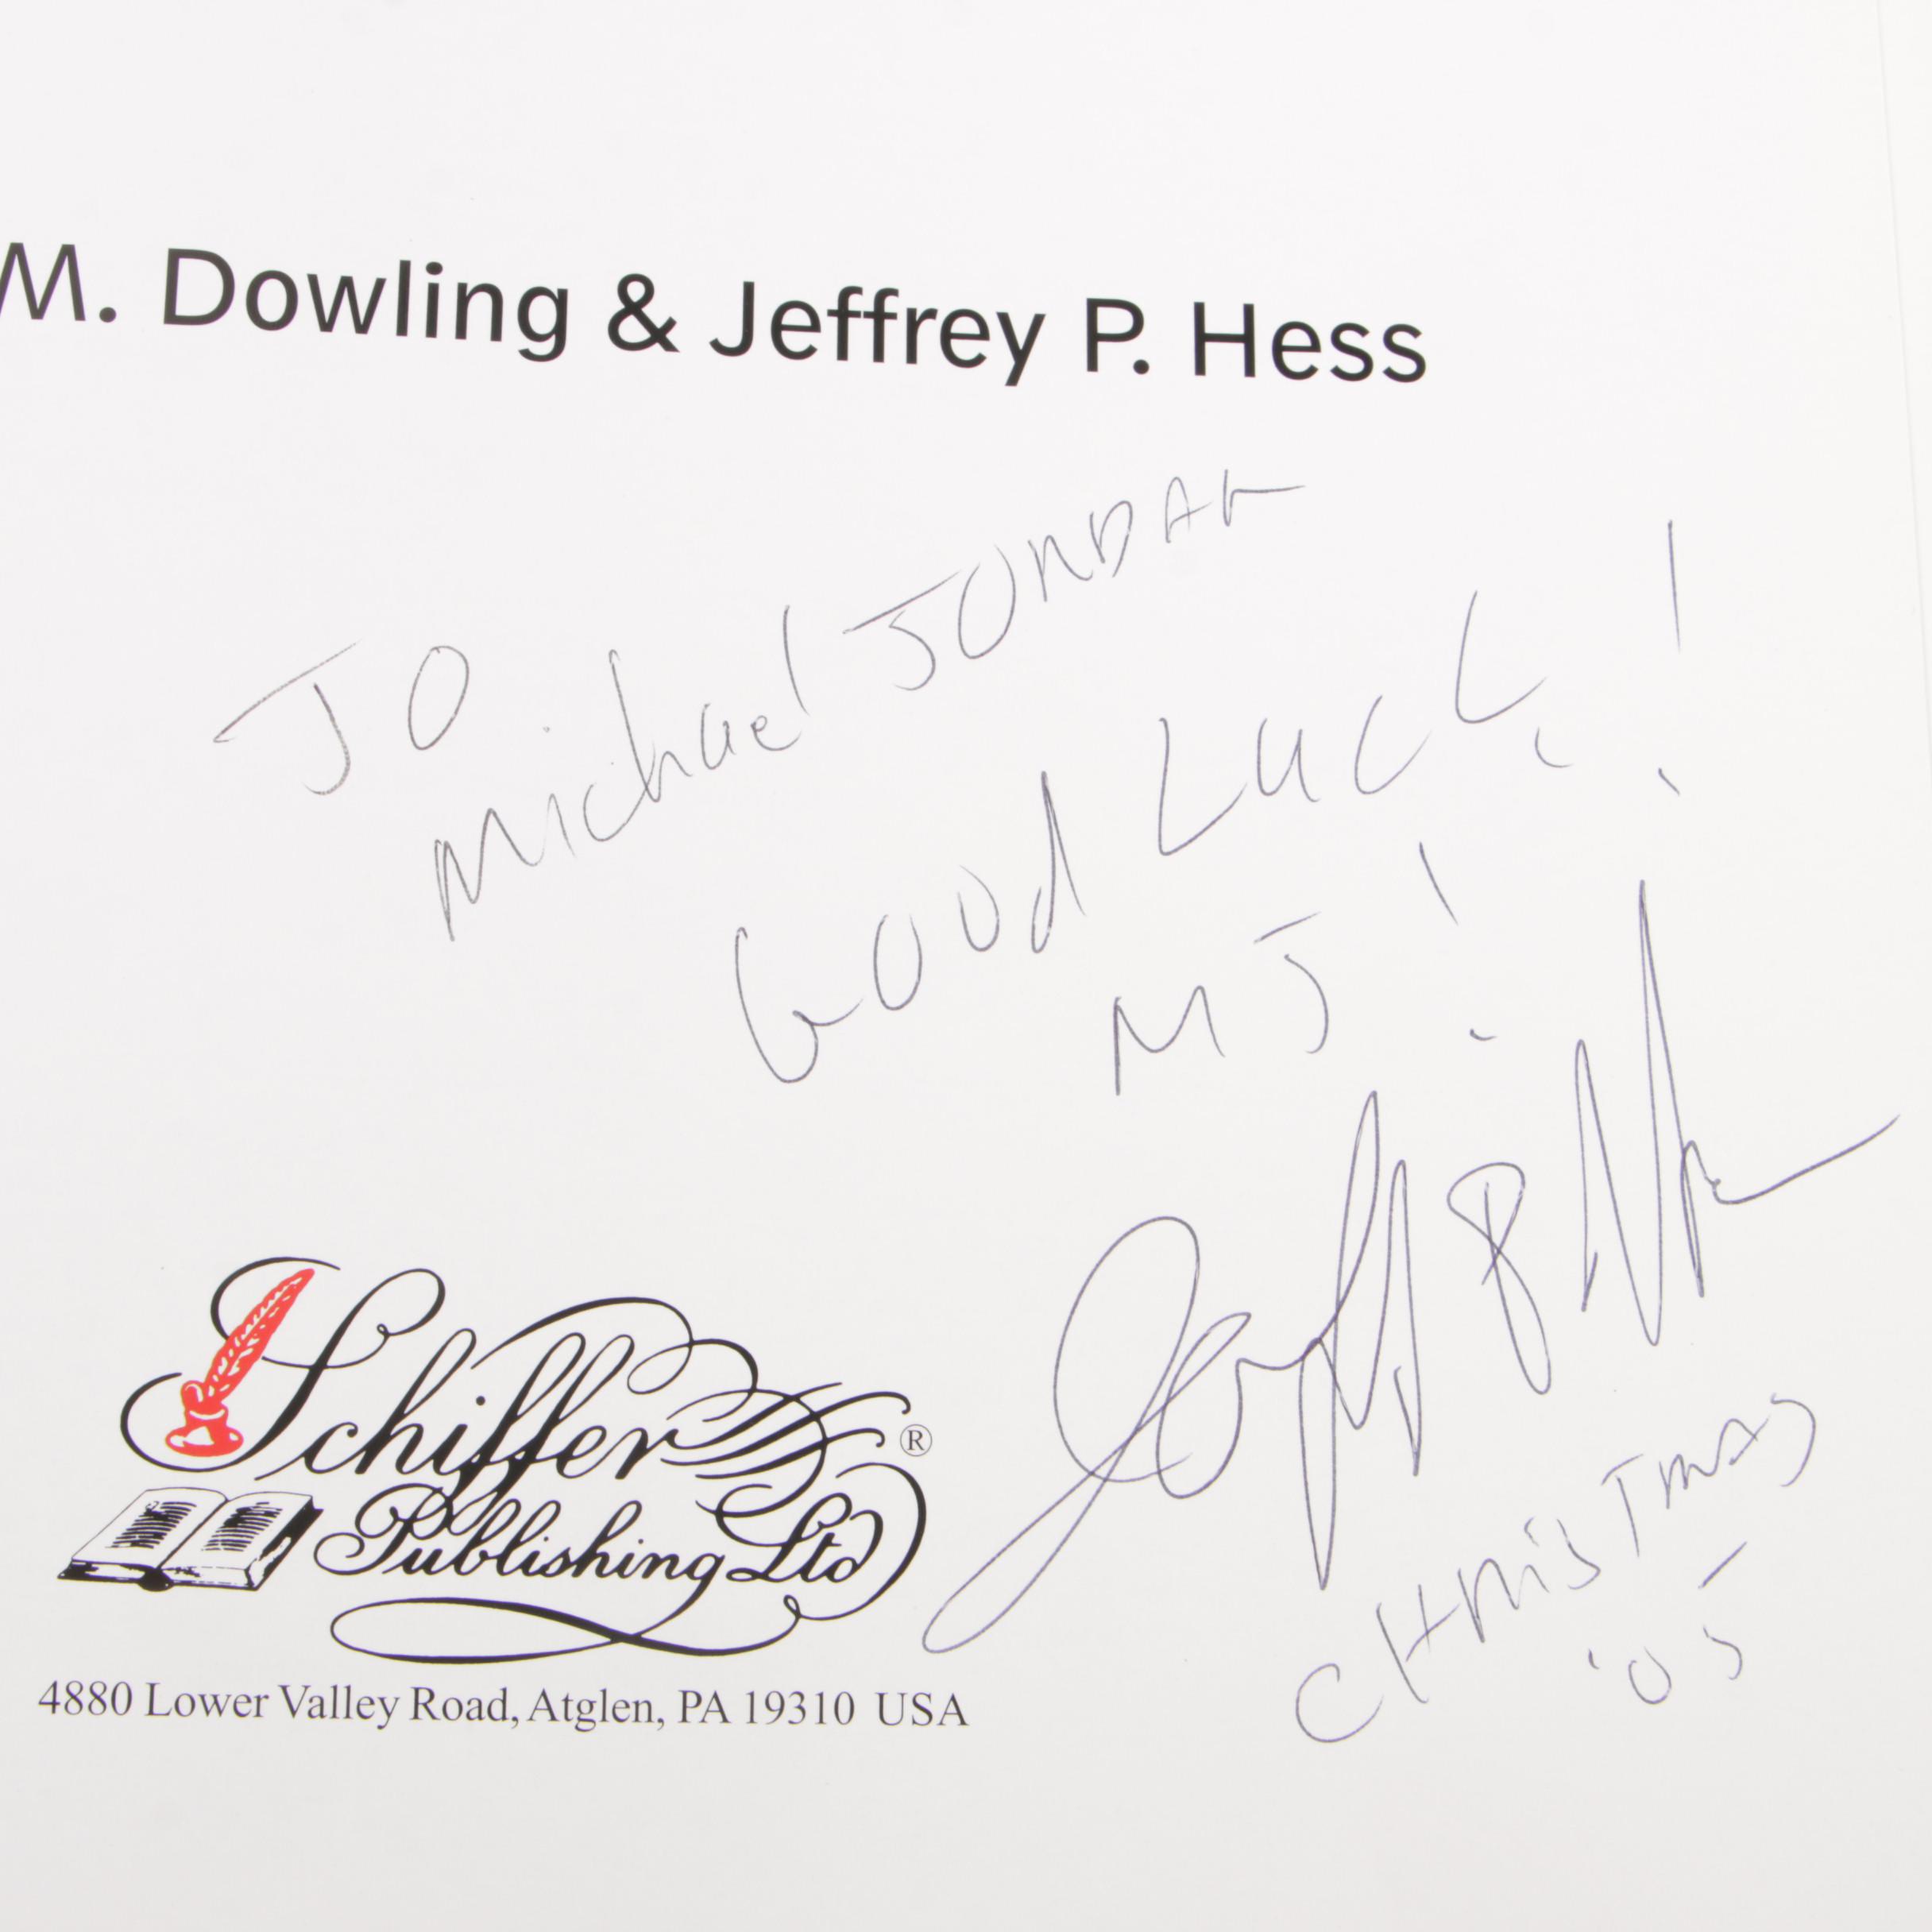 M. Dowling & Jeffrey P. Hess
TO
Michael JORDAN
GOOD LUCK!
MJ!
Schiffer®
Publishing Ltd
4880 Lower Valley Road, Atglen, PA 19310 USA
CHRISTMAS
'05